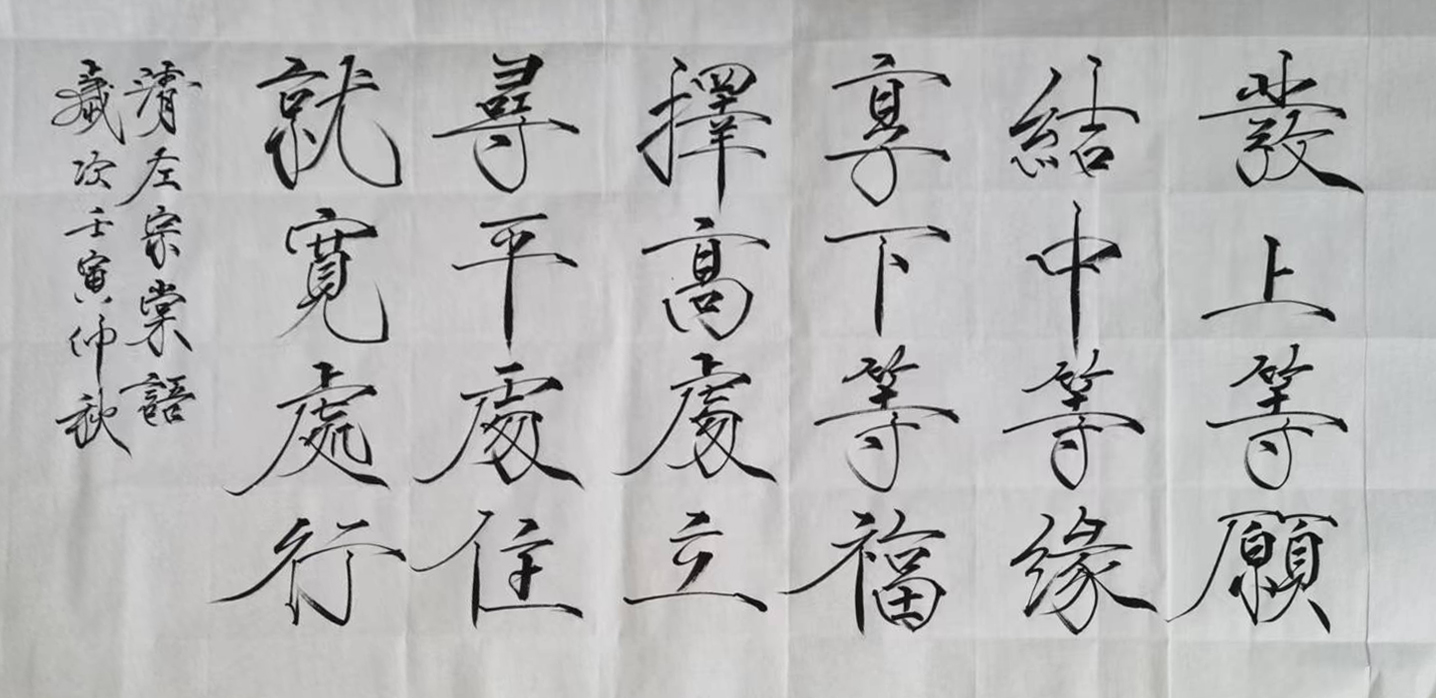 發上等願
結中等緣
享下等福
擇高處立
尋平處住
就寬處行
清左宗棠語
歲次壬寅仲秋